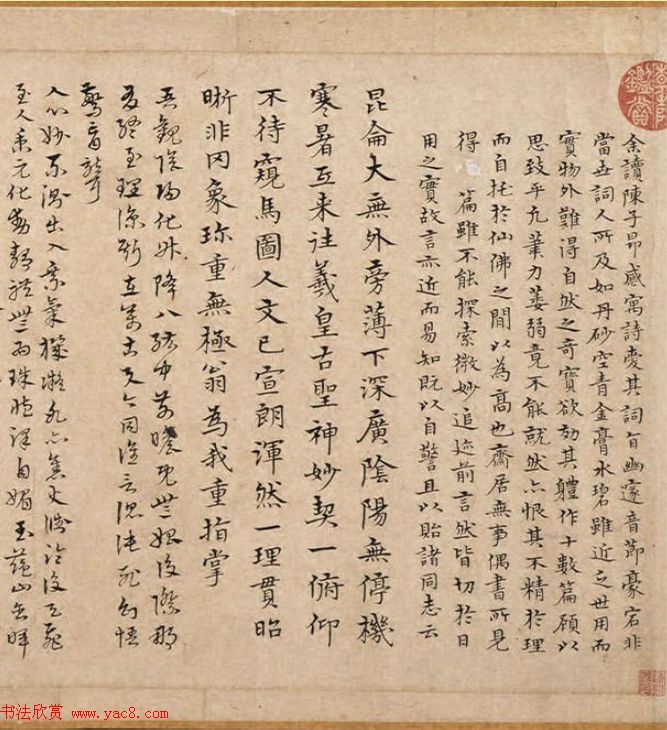 余讀陳子昂感寓詩愛其詞旨幽邃音節豪宕非
當世詞人所及如丹砂空青金膏水碧雖近乏世用而
實物外難得自然之奇寶欲効其軆作十數篇顧以
思致平凡筆力萎弱竟不能就然亦恨其不精於理
而自托於仙佛之間以為高也齋居無事偶書所見
得 篇雖不能探索微妙追迹前言然皆切於日
用之實故言亦近而易知既以自警且以貽諸同志云
昆侖大無外旁薄下深廣陰陽無停機
寒暑互来往羲皇古聖神妙契一俯仰
不待窺馬圖人文已宣朗渾然一理貫昭
晰非罔象珍重無極翁為我重指掌
吾觀陰陽化升降八紘中前瞻既無始後際那
有終至理諒斯存萬古與今同誰言混沌死幻語
驚盲聾
人心妙不測出入乘氣機凝冰亦焦火淵淪復天飛
至人秉元化動静體無違珠藏澤自媚玉蘊山含暉
鑑賞
书法欣赏 www.yac8.com